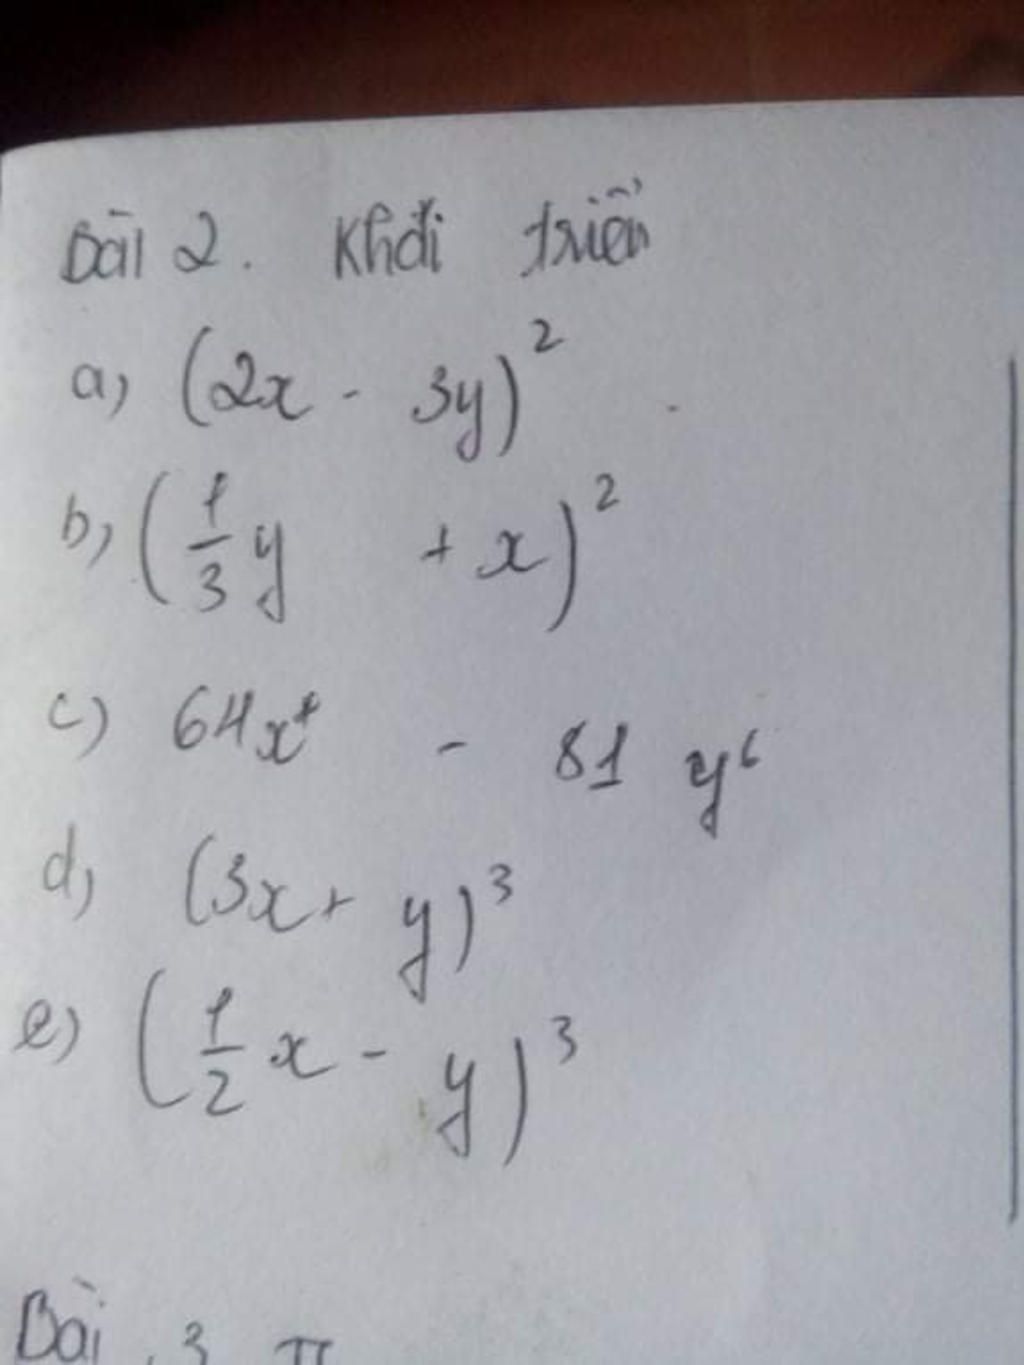 Bài 2. Khải triển
a) (2x - 3y)²
b) (1/3 y + x)²
c) 64x⁴ - 81 y⁶
d) (3x + y)³
e) (1/2 x - y)³
Bài 3